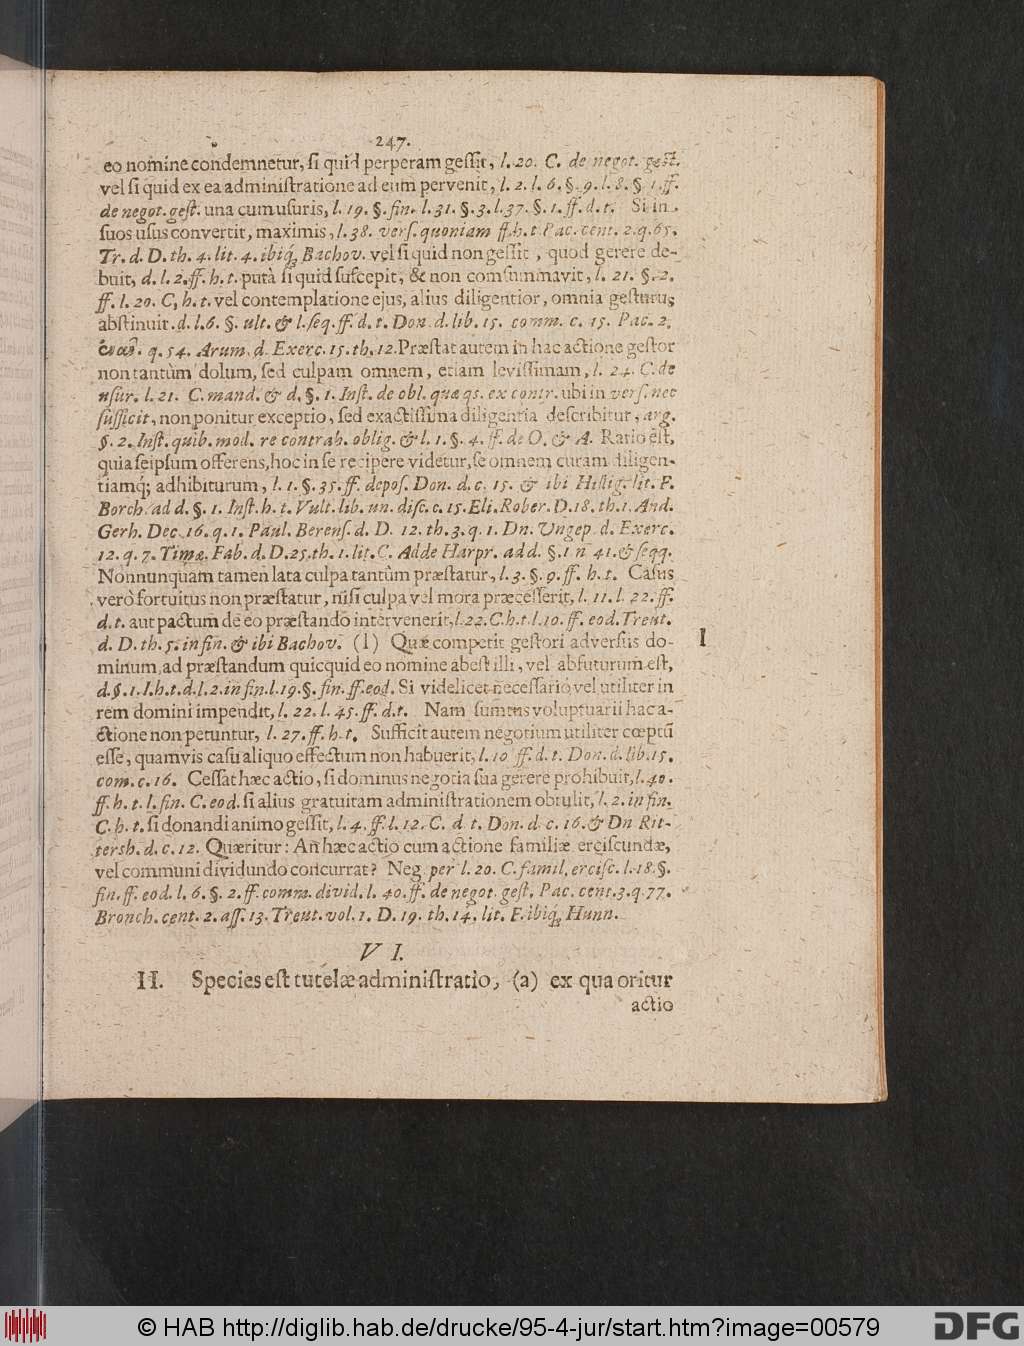 247.
eo nomine condemnetur, ſi quid perperam geſſit, l. 20. C. de negot. geſt.
vel ſi quid ex ea adminiſtratione ad eum pervenit, l. 2. l. 6. §. 9. l. 8. §. 1. ff.
de negot. geſt. una cum uſuris, l. 19. §. fin. l. 31. §. 3. l. 37. §. 1. ff. d. t. Si in
ſuos uſus convertit, maximis, l. 38. verſ. quoniam ff. h. t. Pac. cent. 2. q. 65.
Tr. d. D. th. 4. lit. 4. ibiq́; Bachov. vel ſi quid non geſſit, quod gerere de-
buit, d. l. 2. ff. h. t. putà ſi quid ſuſcepit, & non conſummavit, l. 21. §. 2.
ff. l. 20. C, h. t. vel contemplatione ejus, alius diligentior, omnia geſturus
abſtinuit. d. l. 6. §. ult. & l. ſeq. ff. d. t. Don. d. lib. 15. comm. c. 15. Pac. 2.
q. 54. Arum. d. Exerc. 15. th. 12. Præſtat autem in hac actione geſtor
non tantùm dolum, ſed culpam omnem, etiam leviſſimam, l. 24. C. de
uſur. l. 21. C. mand. & d. §. 1. Inſt. de obl. quæ qs. ex contr. ubi in verſ. nec
ſufficit, non ponitur exceptio, ſed exactiſſima diligentia deſcribitur, arg.
§. 2. Inſt. quib. mod. re contrah. oblig. & l. 1. §. 4. ff. de O. & A. Ratio eſt,
quia ſeipſum offerens, hoc in ſe recipere videtur, ſe omnem curam diligen-
tiamq́; adhibiturum, l. 1. §. 35. ff. depoſ. Don. d. c. 15. & ibi Hillig. lit. F.
Borch. ad d. §. 1. Inſt. h. t. Vult. lib. un. diſc. c. 15. Eli. Rober. D. 18. th. 1. And.
Gerh. Dec. 16. q. 1. Paul. Berenſ. d. D. 12. th. 3. q. 1. Dn. Ungep. d. Exerc.
12. q. 7. Timæ. Fab. d. D. 25. th. 1. lit. C. Adde Harpr. ad d. §. 1 n 41. & ſeqq.
Nonnunquam tamen lata culpa tantùm præſtatur, l. 3. §. 9. ff. h. t. Caſus
verò fortuitus non præſtatur, niſi culpa vel mora præceſſerit, l. 11. l. 22. ff.
d. t. aut pactum de eo præſtando intervenerit, l. 22. C. h. t. l. 10. ff. eod. Treut.
d. D. th. 5. in fin. & ibi Bachov. (l) Quæ competit geſtori adverſus do-
l
minum, ad præſtandum quicquid eo nomine abeſt illi, vel abfuturum eſt,
d. §. 1. I. h. t. d. l. 2. in fin. l. 19. §. fin. ff. eod. Si videlicet neceſſariò vel utiliter in
rem domini impendit, l. 22. l. 45. ff. d. t. Nam ſumtus voluptuarii hac a-
ctione non petuntur, l. 27. ff. h. t. Sufficit autem negotium utiliter cœptũ
eſſe, quamvis caſu aliquo effectum non habuerit, l. 10 ff. d. t. Don. d. lib. 15.
com. c. 16. Ceſſat hæc actio, ſi dominus negotia ſua gerere prohibuit, l. 40.
ff. h. t. l. fin. C. eod. ſi alius gratuitam adminiſtrationem obtulit, l. 2. in fin.
C. h. t. ſi donandi animo geſſit, l. 4. ff. l. 12. C. d. t. Don. d. c. 16. & Dn Rit-
tersh. d. c. 12. Quæritur: An hæc actio cum actione familiæ erciſcundæ,
vel communi dividundo concurrat? Neg. per l. 20. C. famil. erciſc. l. 18. §.
fin. ff. eod. l. 6. §. 2. ff. comm. divid. l. 40. ff. de negot. geſt. Pac. cent. 3. q. 77.
Bronch. cent. 2. aſſ. 13. Treut. vol. 1. D. 19. th. 14. lit. F. ibiq́; Hunn.
V I.
II. Species eſt tutelæ adminiſtratio, (a) ex qua oritur
actio
© HAB http://diglib.hab.de/drucke/95-4-jur/start.htm?image=00579
DFG